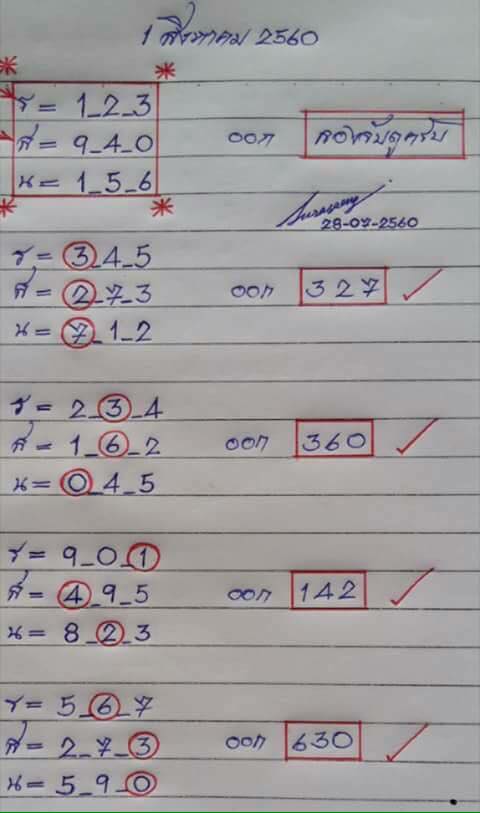 1 สิงหาคม 2560
ร = 1_2_3
ส = 9_4_0 ออก
น = 1_5_6
28-07-2560
ร = 3_4_5
ส = 2_7_3 ออก 327
น = 7_1_2
ร = 2_3_4
ส = 1_6_2 ออก 360
น = 0_4_5
ร = 9_0_1
ส = 4_9_5 ออก 142
น = 8_2_3
ร = 5_6_7
ส = 2_7_3 ออก 630
น = 5_9_0